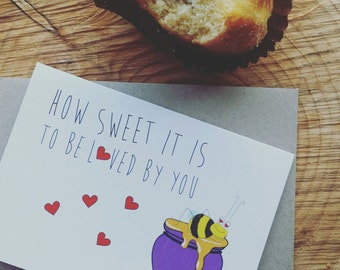 HOW SWEET IT IS
TO BE LOVED BY YOU